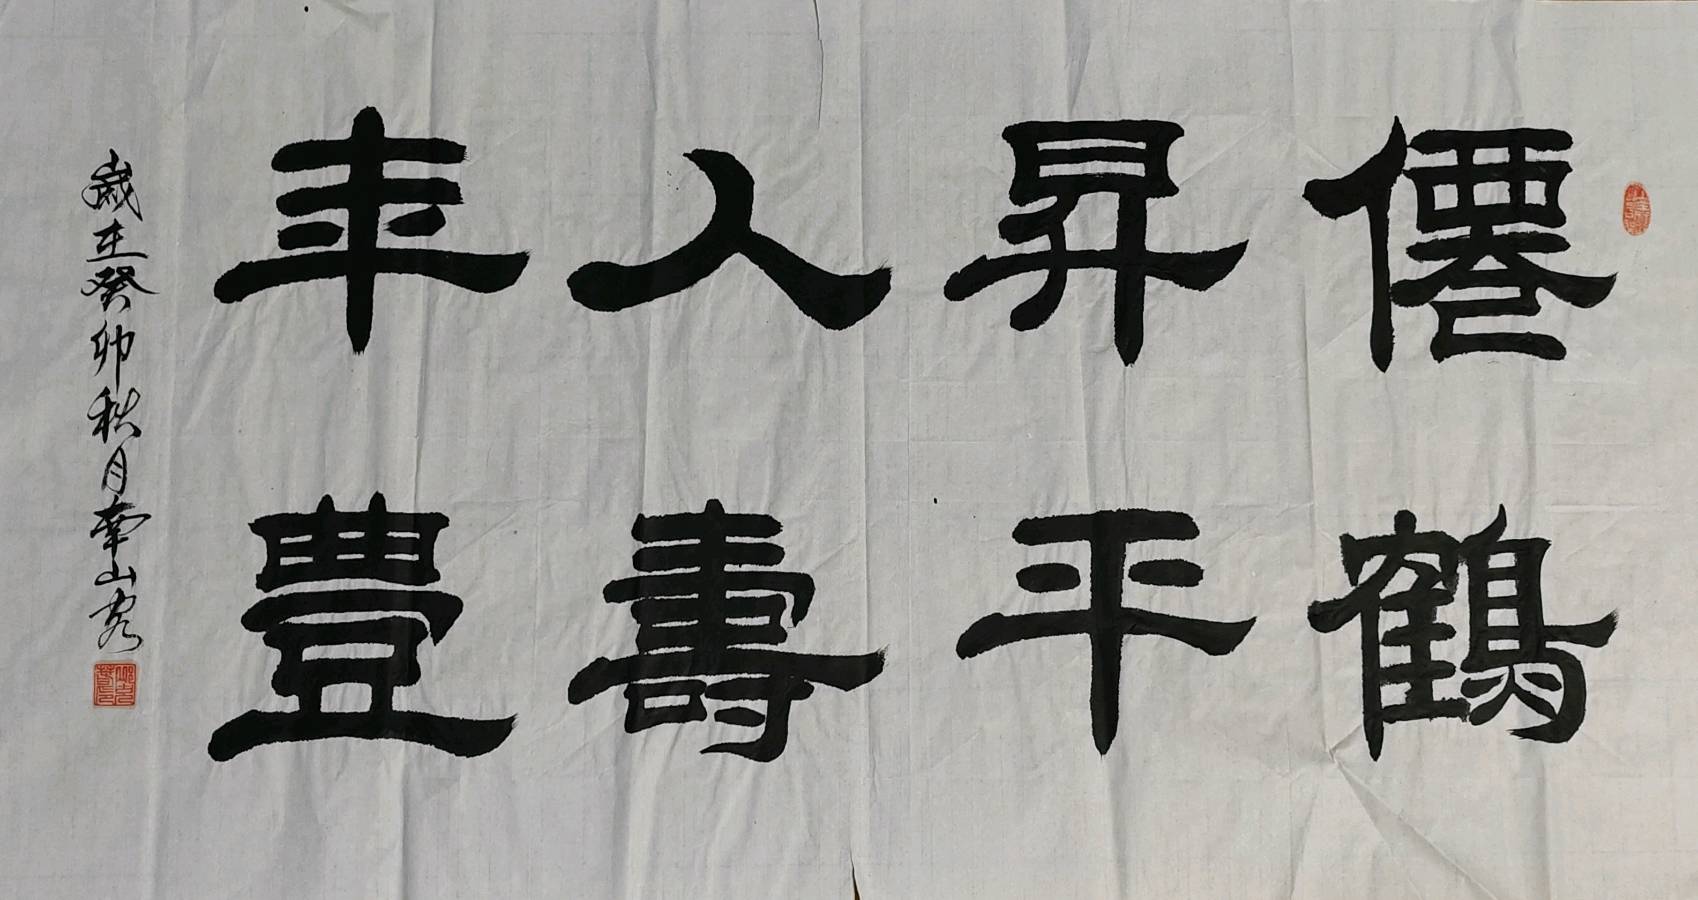 僊鶴
昇平
人壽
年豊
歲在癸卯秋月南山客